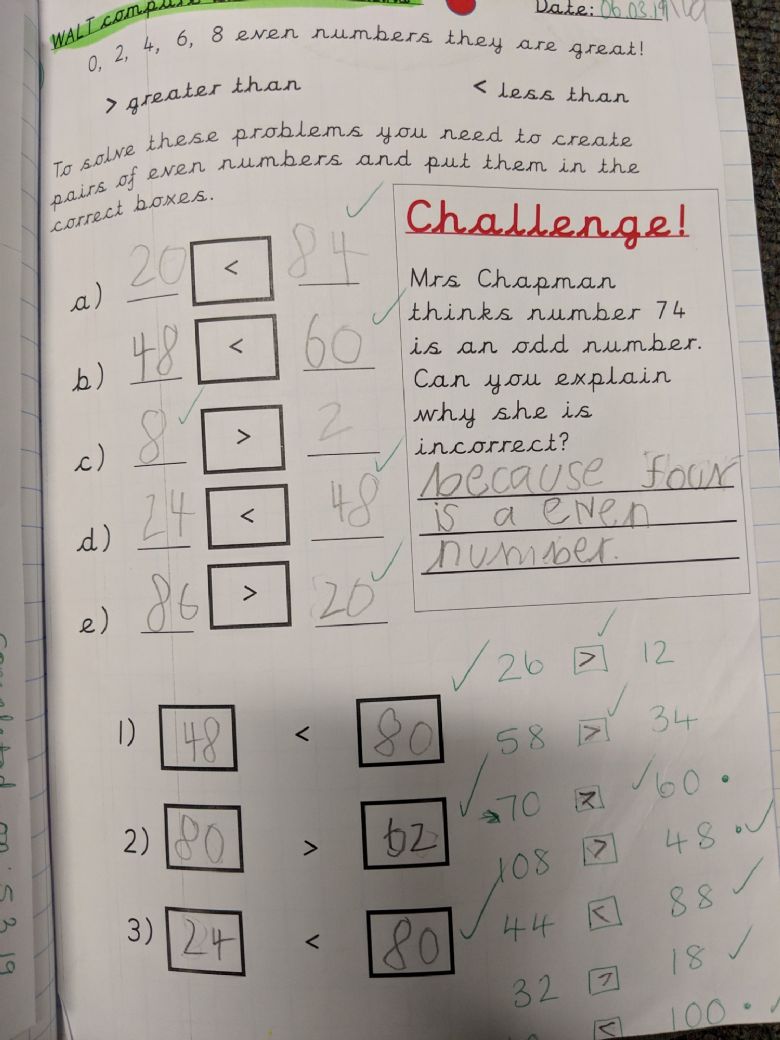 WALT compare
Date: 06.03.19
0, 2, 4, 6, 8 even numbers they are great!
> greater than < less than
To solve these problems you need to create
pairs of even numbers and put them in the
correct boxes.
a) 20 < 84
b) 48 < 60
c) 8 > 2
d) 24 < 48
e) 86 > 20
Challenge!
Mrs Chapman
thinks number 74
is an odd number.
Can you explain
why she is
incorrect?
because four
is a even
number.
1) 48 < 80
2) 80 > 62
3) 24 < 80
26 > 12
58 > 34
70 60
108 > 48
44 < 88
32 > 18
< 100